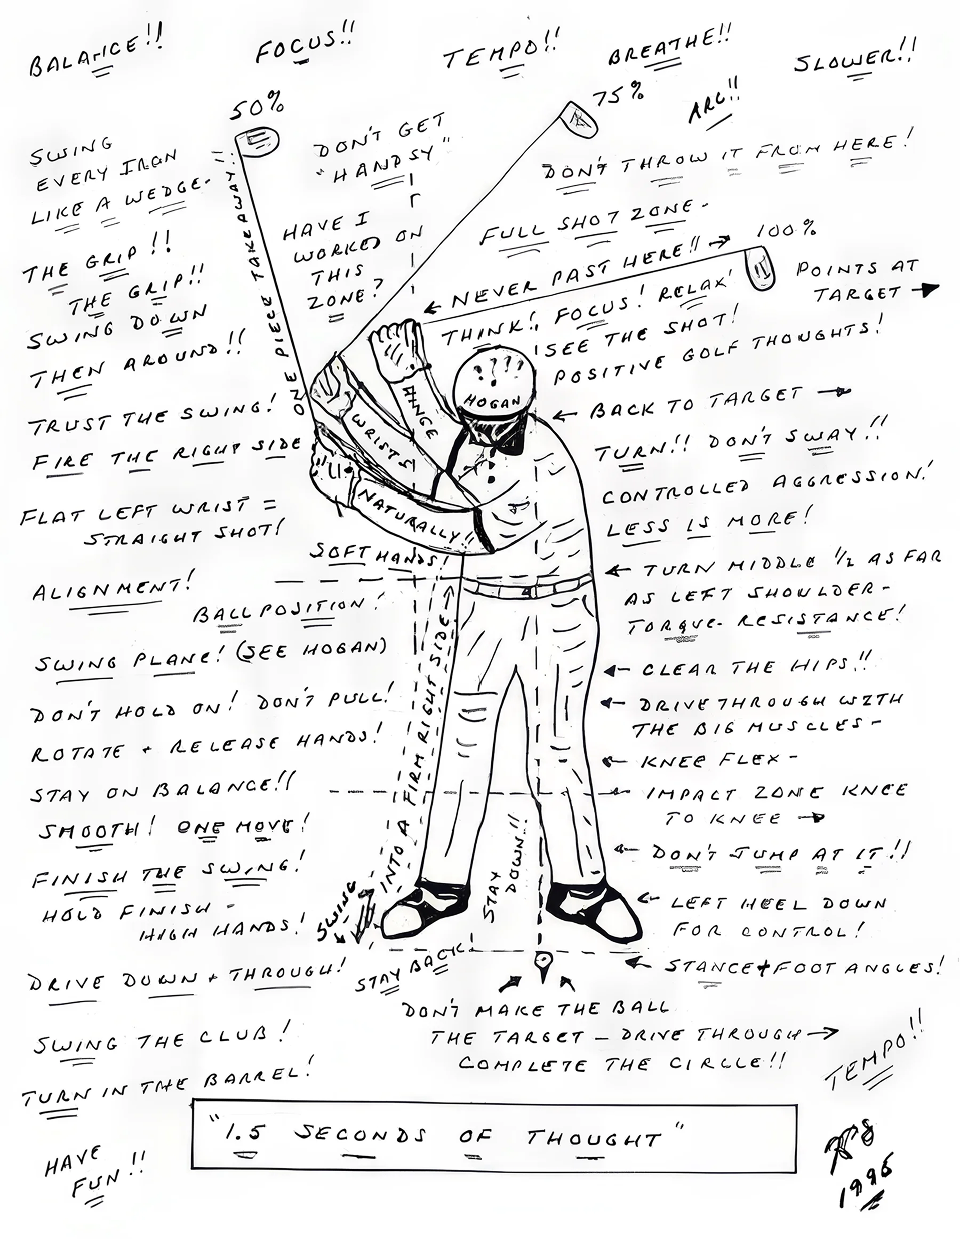 BALANCE!!
FOCUS!!
TEMPO!!
BREATHE!!
SLOWER!!
50%
75%
ARC!!
SWING
EVERY IRON
LIKE A WEDGE-
DON'T GET
"HANDSY"
DON'T THROW IT FROM HERE!
FULL SHOT ZONE-
100%
HAVE I
WORKED ON
THIS
ZONE?
NEVER PAST HERE!!
POINTS AT
TARGET
THE GRIP!!
THE GRIP!!
SWING DOWN
THEN AROUND!!
ONE PIECE TAKEAWAY!!
THINK!, FOCUS! RELAX!
SEE THE SHOT!
POSITIVE GOLF THOUGHTS!
TRUST THE SWING!
FIRE THE RIGHT SIDE
HINGE
WRISTS
NATURALLY!!
HOGAN
BACK TO TARGET
TURN!! DON'T SWAY!!
CONTROLLED AGGRESSION!
LESS IS MORE!
FLAT LEFT WRIST =
STRAIGHT SHOT!
SOFT HANDS
ALIGNMENT!
BALL POSITION!
TURN MIDDLE 1/2 AS FAR
AS LEFT SHOULDER-
TORQUE- RESISTANCE!
SWING PLANE! (SEE HOGAN)
CLEAR THE HIPS!!
DON'T HOLD ON! DON'T PULL!
DRIVE THROUGH WITH
THE BIG MUSCLES-
ROTATE + RELEASE HANDS!
KNEE FLEX-
STAY ON BALANCE!!
IMPACT ZONE KNEE
TO KNEE
SMOOTH! ONE MOVE!
SWING INTO A FIRM RIGHT SIDE
STAY
DOWN!!
DON'T JUMP AT IT!!
FINISH THE SWING!
HOLD FINISH-
HIGH HANDS!
LEFT HEEL DOWN
FOR CONTROL!
DRIVE DOWN + THROUGH!
STAY BACK
STANCE + FOOT ANGLES!
DON'T MAKE THE BALL
THE TARGET - DRIVE THROUGH
COMPLETE THE CIRCLE!!
SWING THE CLUB!
TURN IN THE BARREL!
TEMPO!!
"1.5 SECONDS OF THOUGHT"
HAVE
FUN!!
1996